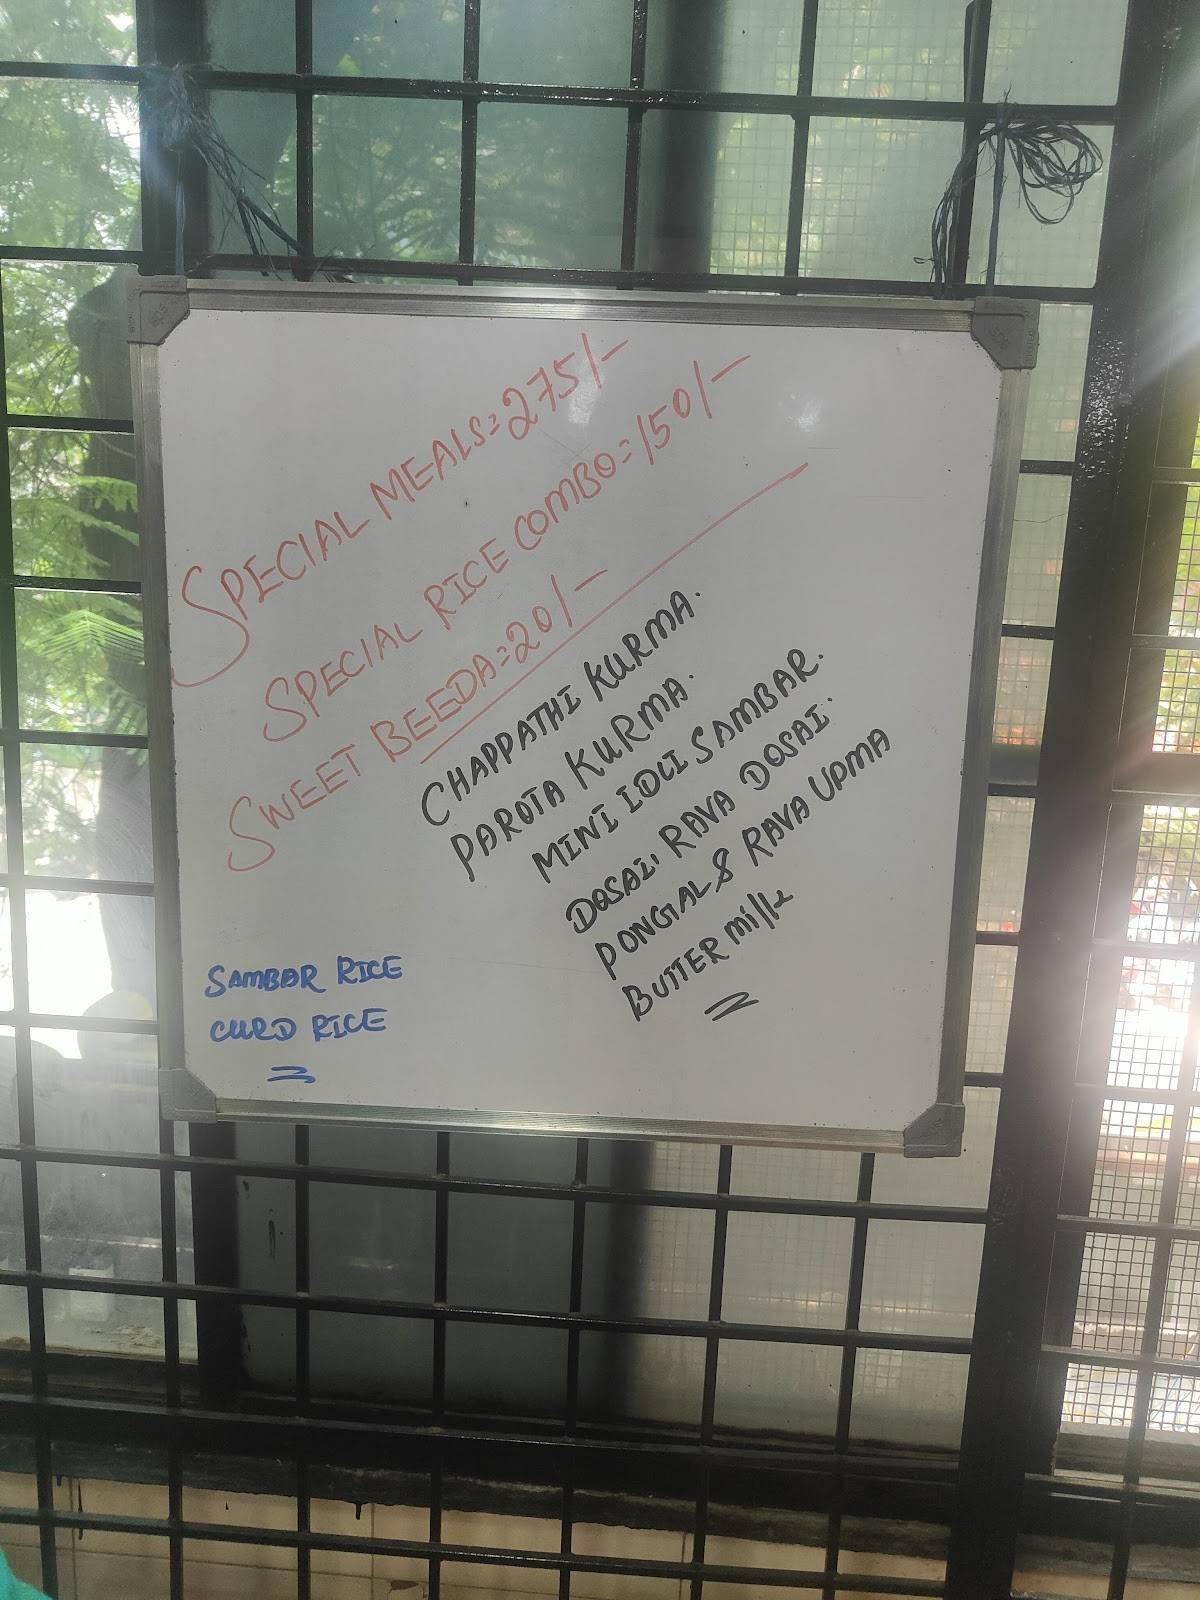 SPECIAL MEALS=275/-
SPECIAL RICE COMBO=150/-
SWEET BEEDA=20/-
CHAPPATHI KURMA.
PAROTA KURMA.
MINI IDLI SAMBAR.
DOSAI, RAVA DOSAI.
PONGAL & RAVA UPMA
BUTTER milk
SAMBAR RICE
CURD RICE